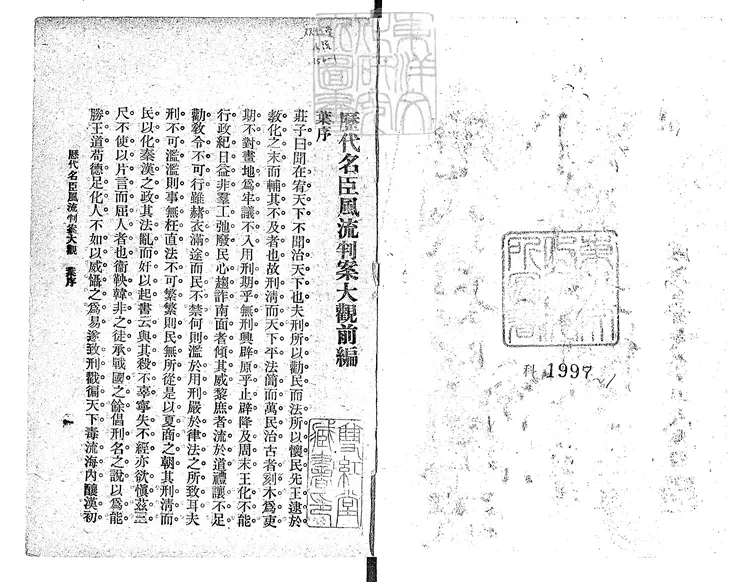 歷代名臣風流判案大觀前編
葉序
莊子曰聞在宥天下不聞治天下也夫刑所以勸民而法所以懷民先王逮於
敎化之末而輔其不及者也故刑淸而天下平法簡而萬民治古者刻木爲吏
期不對畫地爲牢議不入用刑期乎無刑興辟原乎止辟降及周末王化不能
行政紀日益非羣工弛廢民心趨詐南面者傾其威黎庶者流於道禮讓不足
勸敎令不可行雖赭衣滿途而民不禁何則濫於用刑嚴於律法之所致耳夫
刑不可濫濫則事無枉直法不可繁繁則民無所從是以夏商之朝其刑淸而
民以化秦漢之政其法亂而好以起書云與其殺不辜寧失不經亦欲愼茲三
尺不使以片言而屈人者也衞鞅韓非之徒承戰國之餘倡刑名之說以爲能
勝王道苟德足化人不如以威懾之爲易遂致刑戮徧天下毒流海內釀漢初
歷代名臣風流判案大觀 葉序
一
雙紅堂
藏書印
科 1997